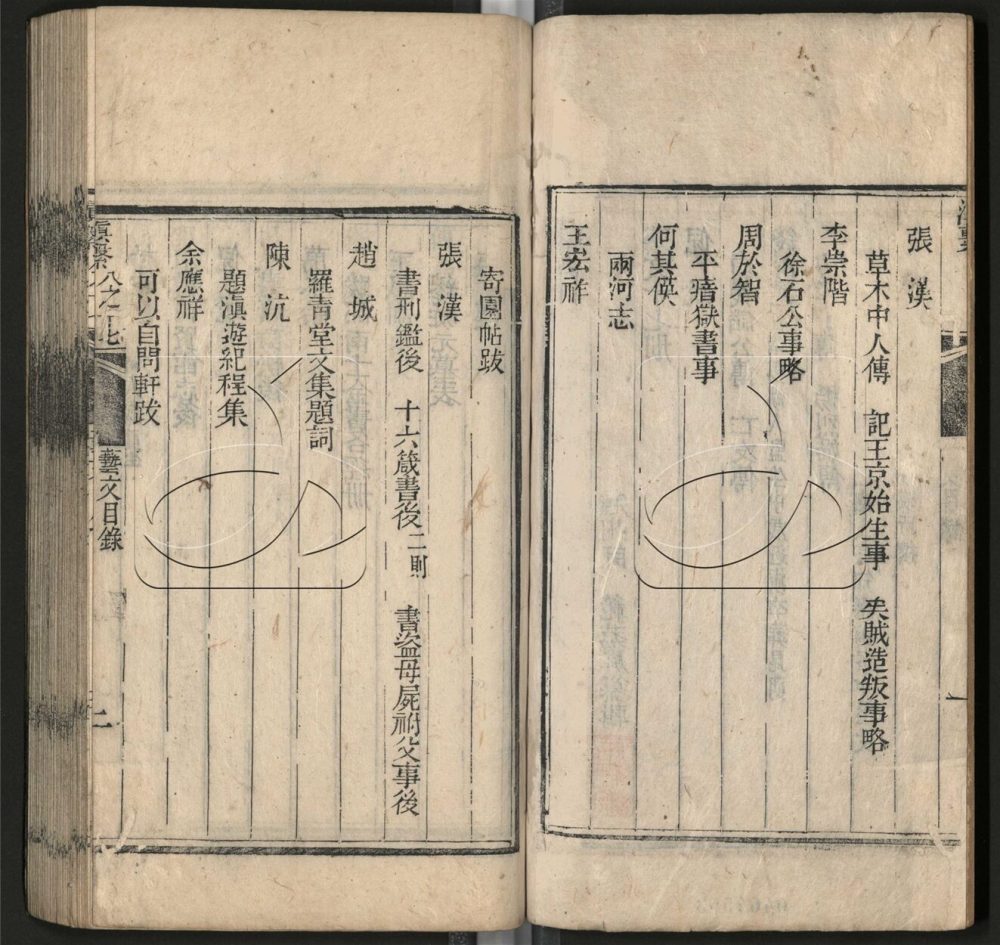 張漢
草木中人傳　記王京始生事　夷賊造叛事略
李崇階
徐石公事略
周於智
平瘖獄書事
何其偀
兩河志
王宏祚
寄園帖跋
張漢
書刑鑑後　十六箴書後二則　書盜母屍祔父事後
趙城
羅青堂文集題詞
陳沆
題滇遊紀程集
余應祥
可以自問軒跋
滇繫八之七
藝文目錄
二